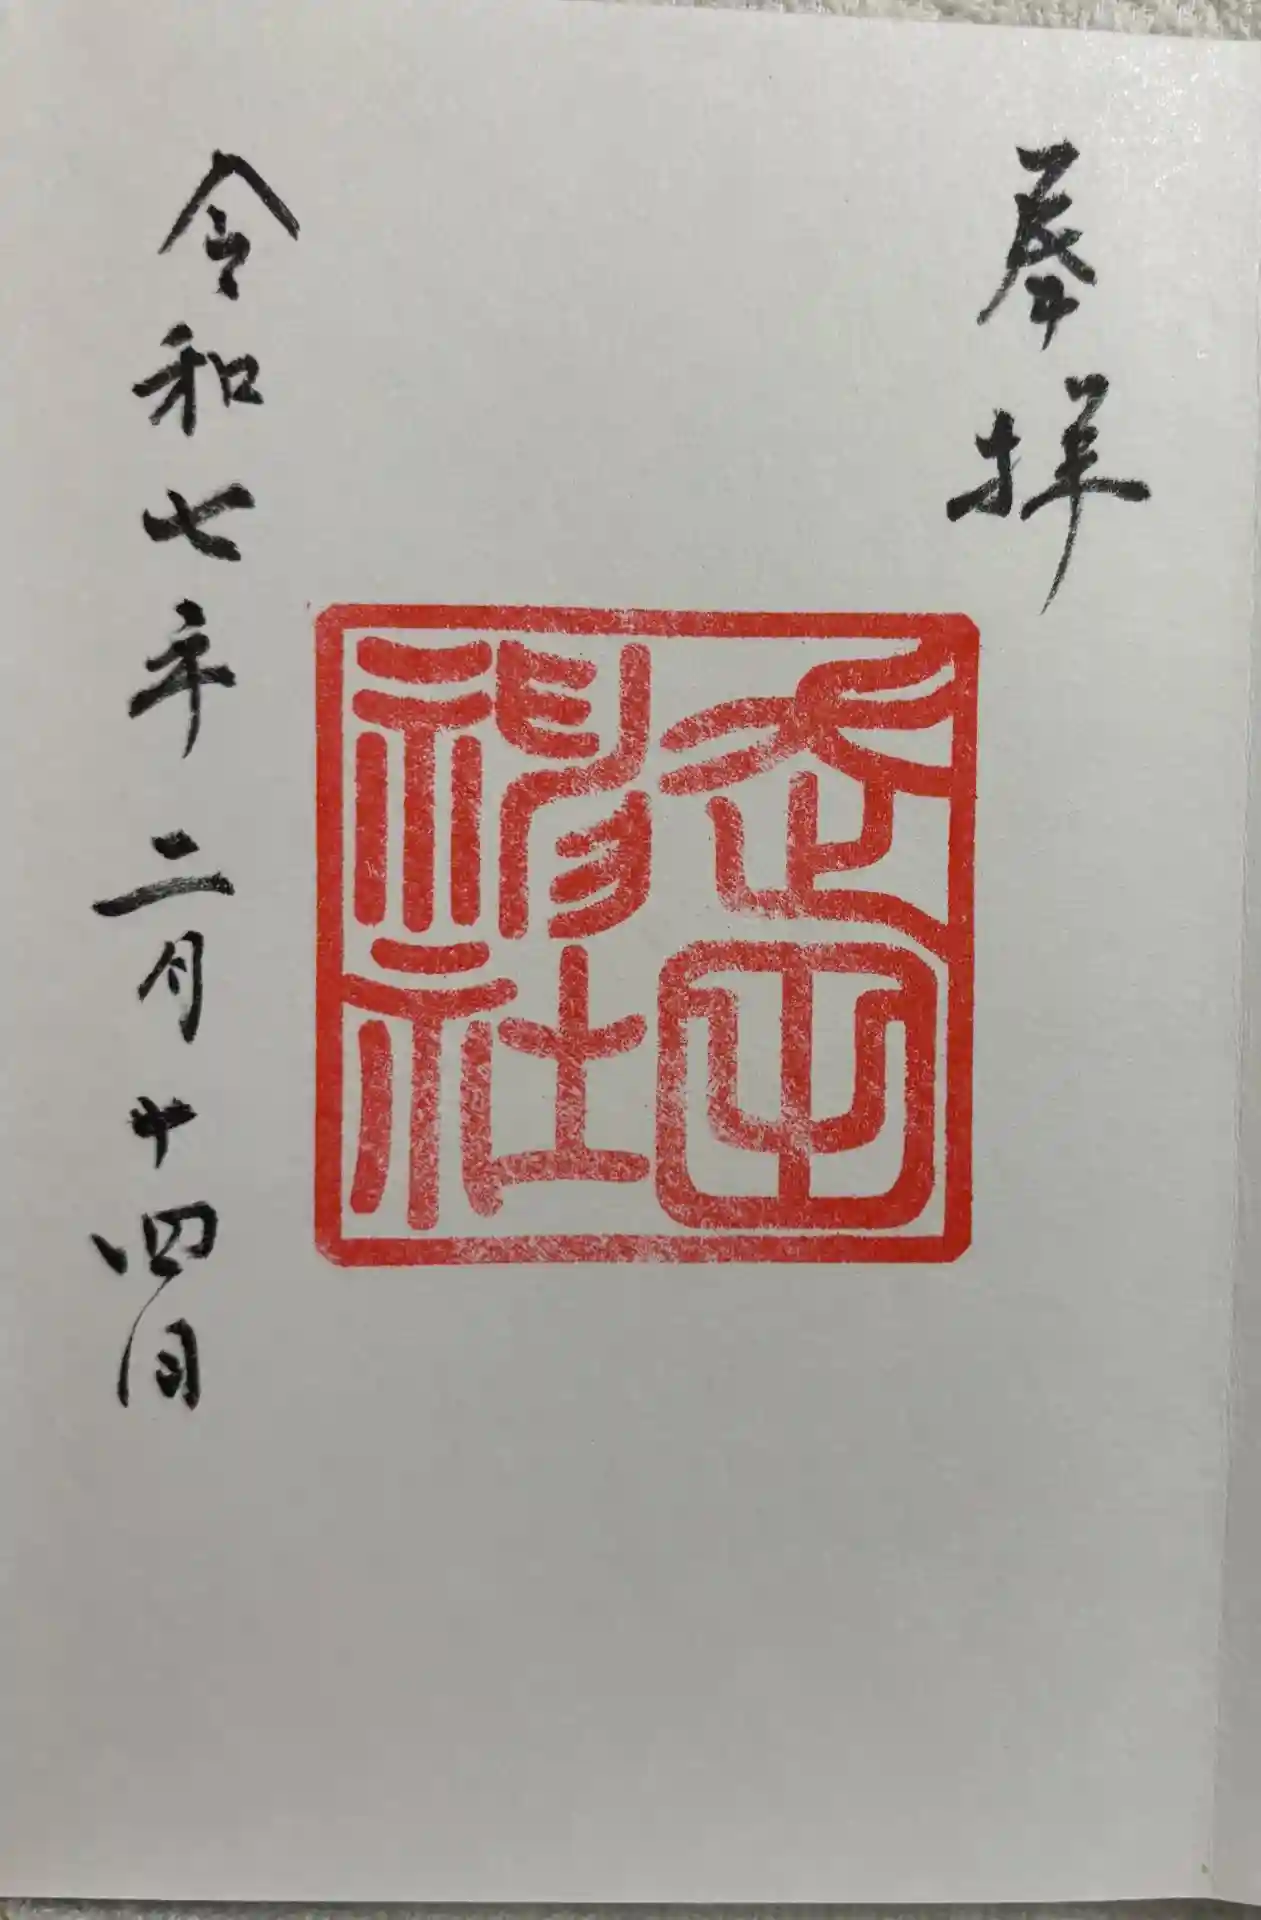 奉拝
走田神社
令和七年二月十四日